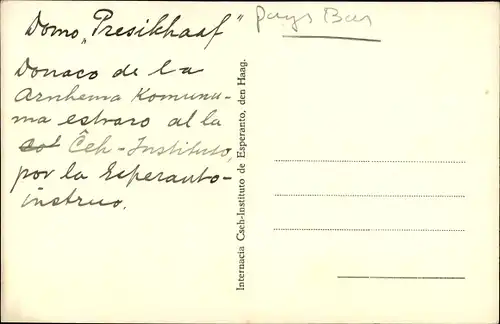 Domo „Presikhaaf"
Donaco de la
Arnhema Komunu-
ma estraro al la
Ĉeh-Instituto,
por la Esperanto-
instruo.
pays Bas
Internacia Cseh-Instituto de Esperanto, den Haag.